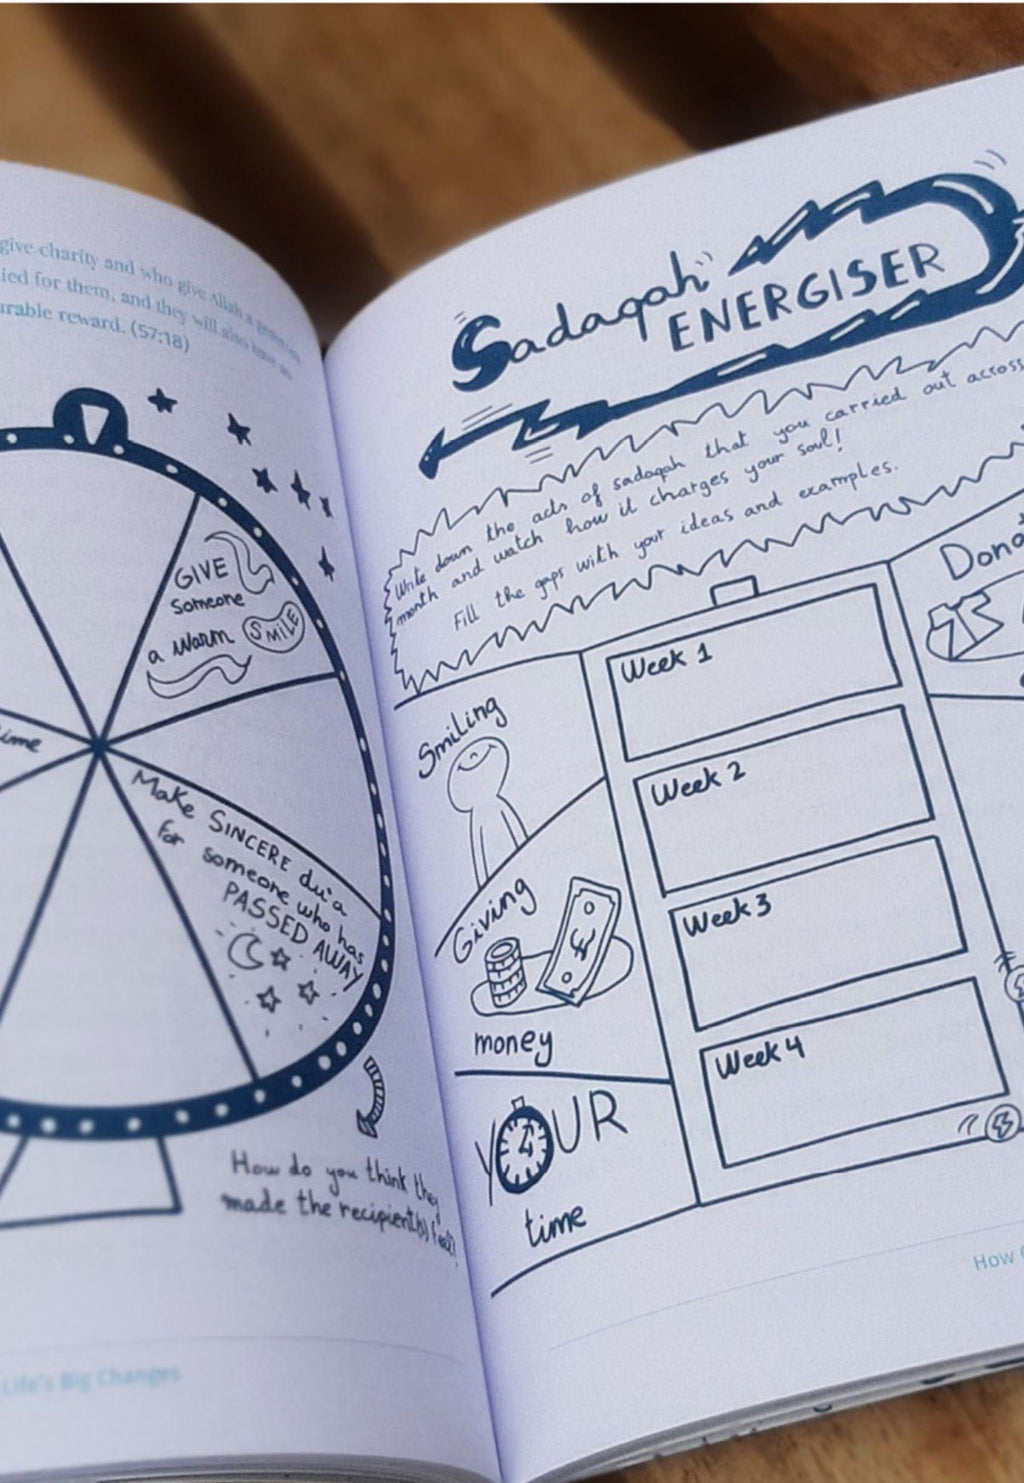 give charity and who give Allah a
ied for them, and they will also have an
urable reward. (57:18)
GIVE
someone
a warm SMILE
ime
Make SINCERE du'a
for someone who has
PASSED AWAY
How do you think they
made the recipient(s) feel?
Life's Big Changes
Sadaqah
ENERGISER
Write down the acts of sadaqah that you carried out across
month and watch how it charges your soul!
Fill the gaps with your ideas and examples.
Smiling
Giving
£
money
YOUR
time
Week 1
Week 2
Week 3
Week 4
Dona
How